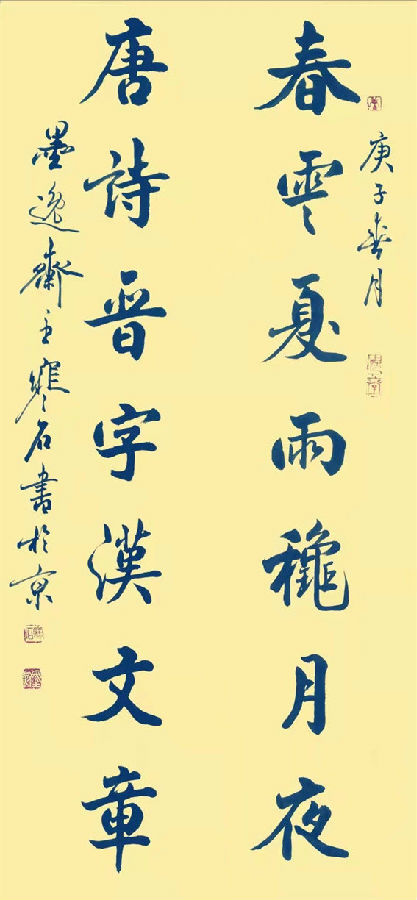 庚子春月
春雲夏雨龝月夜
唐詩晋字漢文章
墨逸齋主寒石書於京